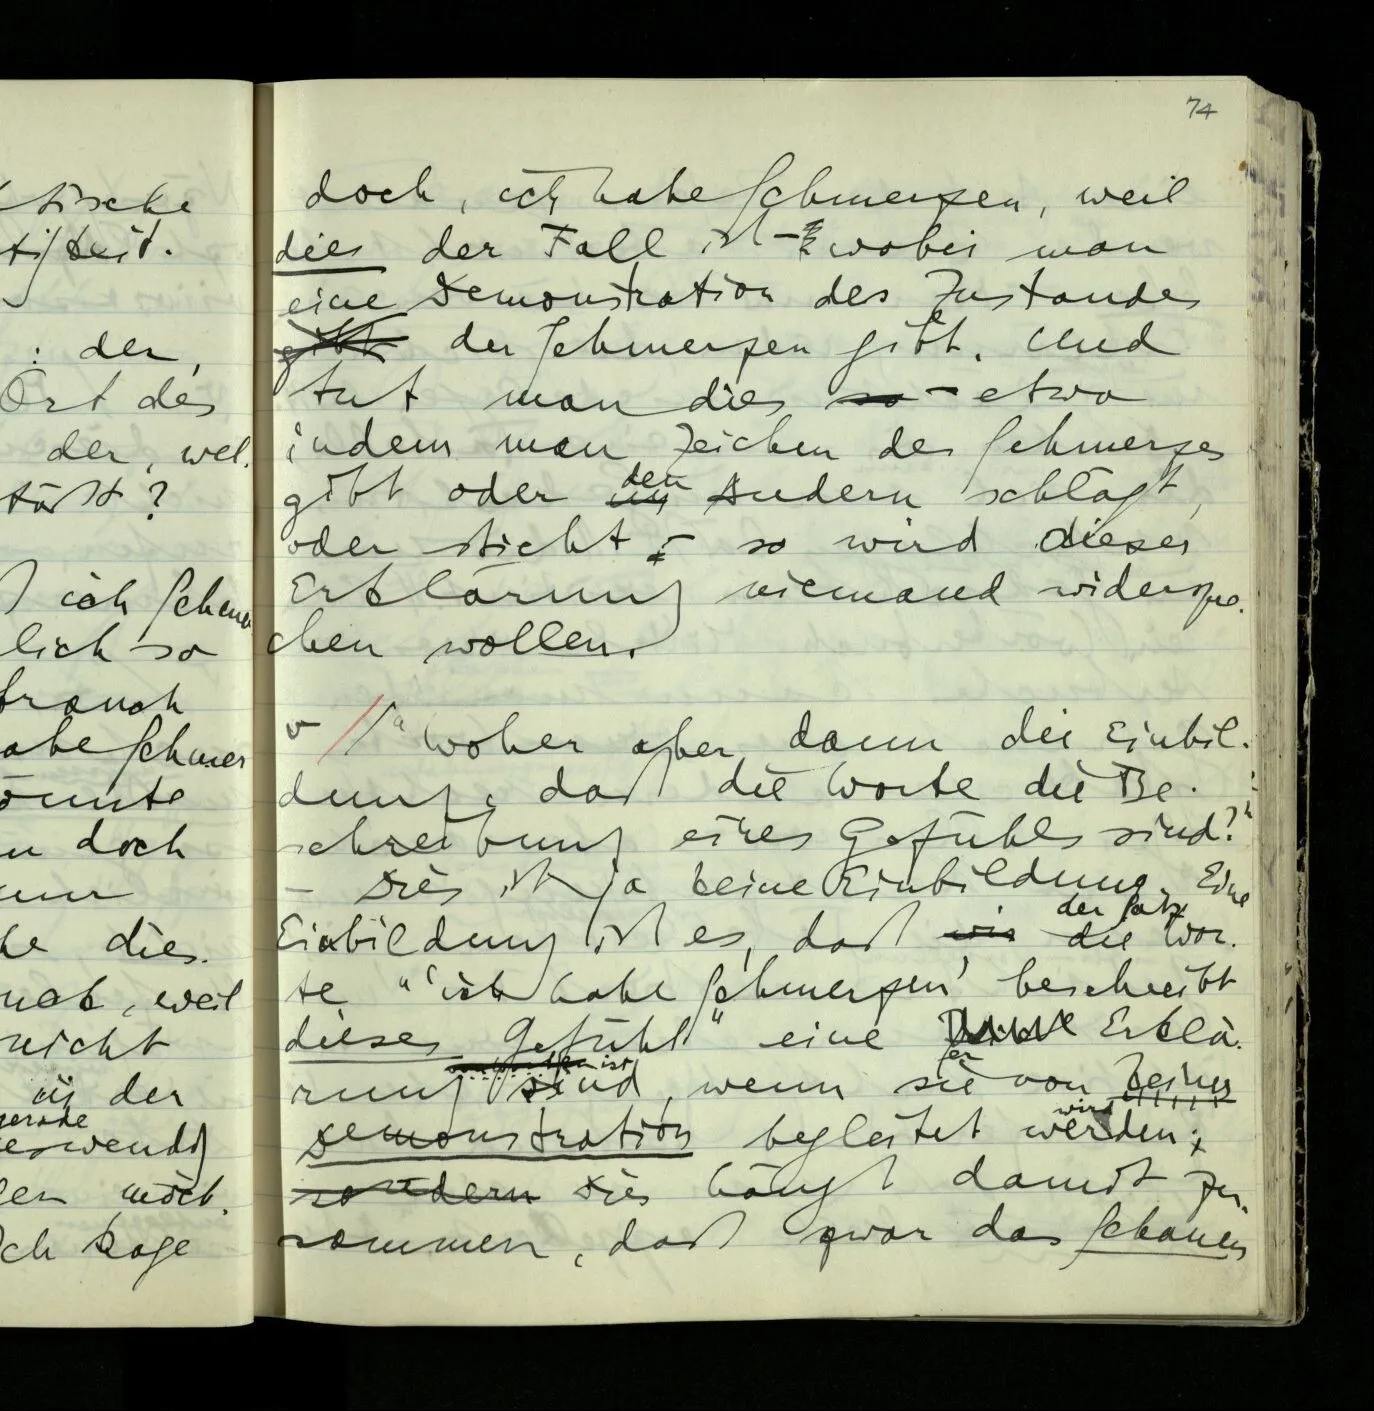 74
tische
tigkeit.
: der,
Ort des
der, wel-
tößt?
ich Schmer
lich so
brauch
abe Schmer
önnte
n doch
he dies.
weil
nicht
in der
gerade
eswendig
en möch-
Ich sage
doch, ich habe Schmerzen, weil
dies der Fall ist – wobei man
eine Demonstration des Zustandes
gibt der Schmerzen gibt. Und
tut man dies so – etwa
indem man Zeichen des Schmerzes
den
gibt oder Andern schlägt,
oder sticht – so wird dieser
Erklärung niemand widerspre-
chen wollen.
"Woher aber dann die Einbil-
dung, daß die Worte die Be-
schreibung eines Gefühls sind?"
– Dies ist ja keine Einbildung. Eine
der Satz
Einbildung ist es, daß wie die Wor-
te "'ich habe Schmerzen' beschreibt
dieses Gefühl" eine Erklä-
ist
rung sind, wenn sie von keiner
er
wird
Demonstration begleitet werden;
sondern Dies hängt damit zu-
sammen, daß zwar das Schauen